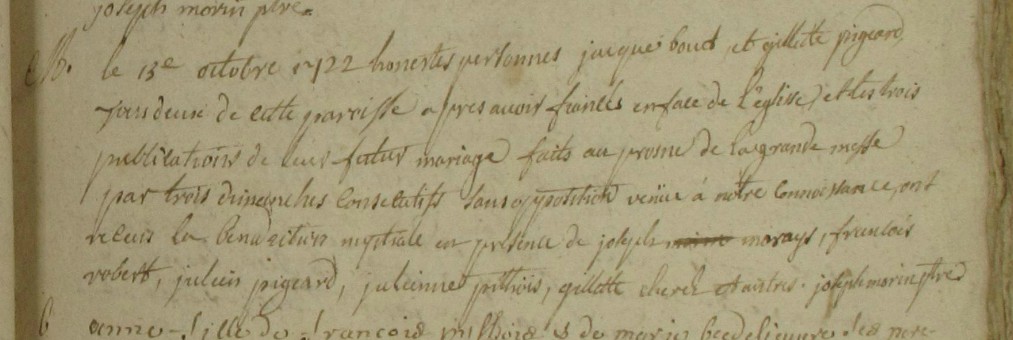 joseph morin ptre.
M. le 13e octobre 1722 honestes personnes jacque bout et gillette pigeard
tous deux de cette parroisse apres avoir fiancés en face de l'eglise, et les trois
publications de leur futur mariage faits au prosne de la grande messe
par trois dimanches consecutifs sans opposition venüe à notre connoissance, ont
receus la benediction nuptiale en presence de joseph marays, francois
robert, julien pigeard, julienne pithois, gillette et autres. joseph morin ptre
anne fille de francois pithois & de marie